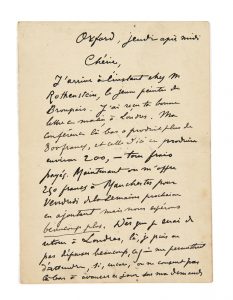 Oxford, jeudi après midi
Chérie,
J'arrive à l'instant chez M
Rothenstein, le jeune peintre de
J'ai reçu ta bonne
lettre ce matin à Londres. Ma
conférence là bas a produit plus de
francs, et celle d'ici en produira
environ 200, — tous frais
payés. Maintenant on m'offre
250 francs à Manchester pour
Vendredi de la semaine prochaine
en ajoutant mais nous espérons
beaucoup plus. Dès que je serai de
retour à Londres, là, je puis ne
pas dépenser beaucoup, me permettent
d'attendre, si, encore, on ne consent pas
à avancer ce jour sur ma demande